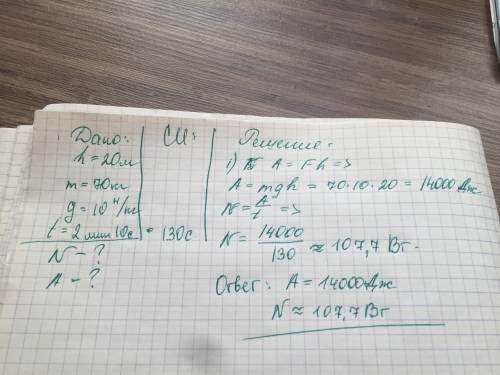 Дано:
h = 20м
m = 70кг
g = 10 Н/кг
t = 2 мин 10с
N - ?
A - ?
СИ:
130с
Решение:
1) A = Fh =>
A = mgh = 70·10·20 = 14000 Дж
N = A/t =>
N = 14000/130 ≈ 107,7 Вт.
Ответ: A = 14000 Дж
N ≈ 107,7 Вт